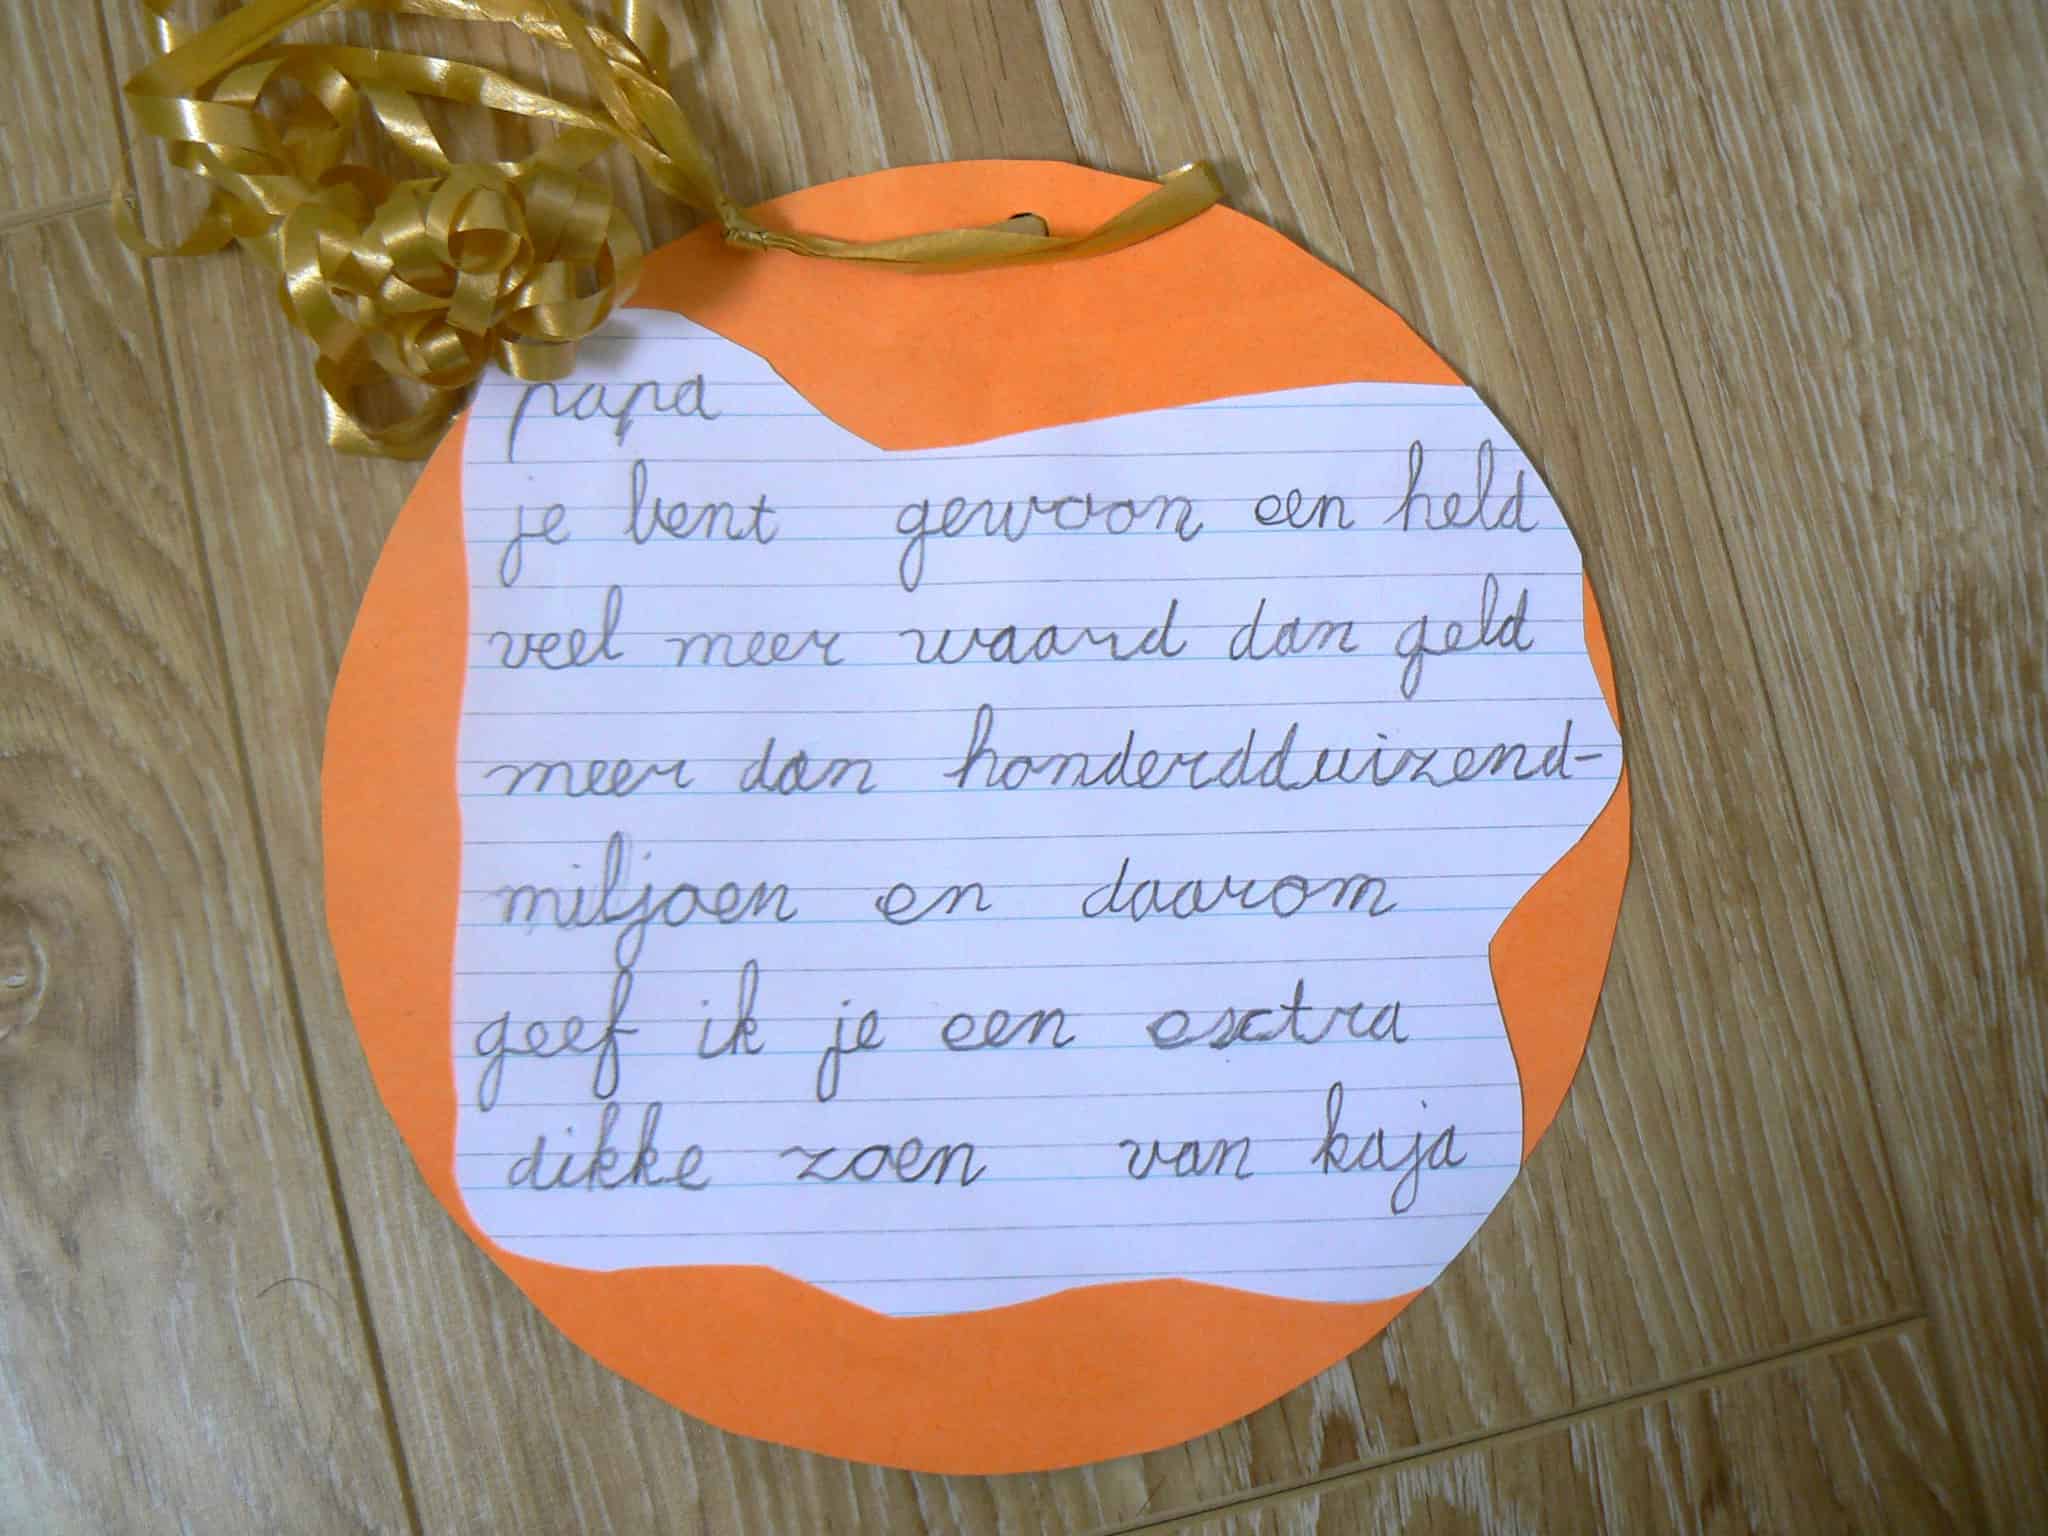 papa
je bent gewoon een held
veel meer waard dan geld
meer dan honderdduizend-
miljoen en daarom
geef ik je een extra
dikke zoen van kaja